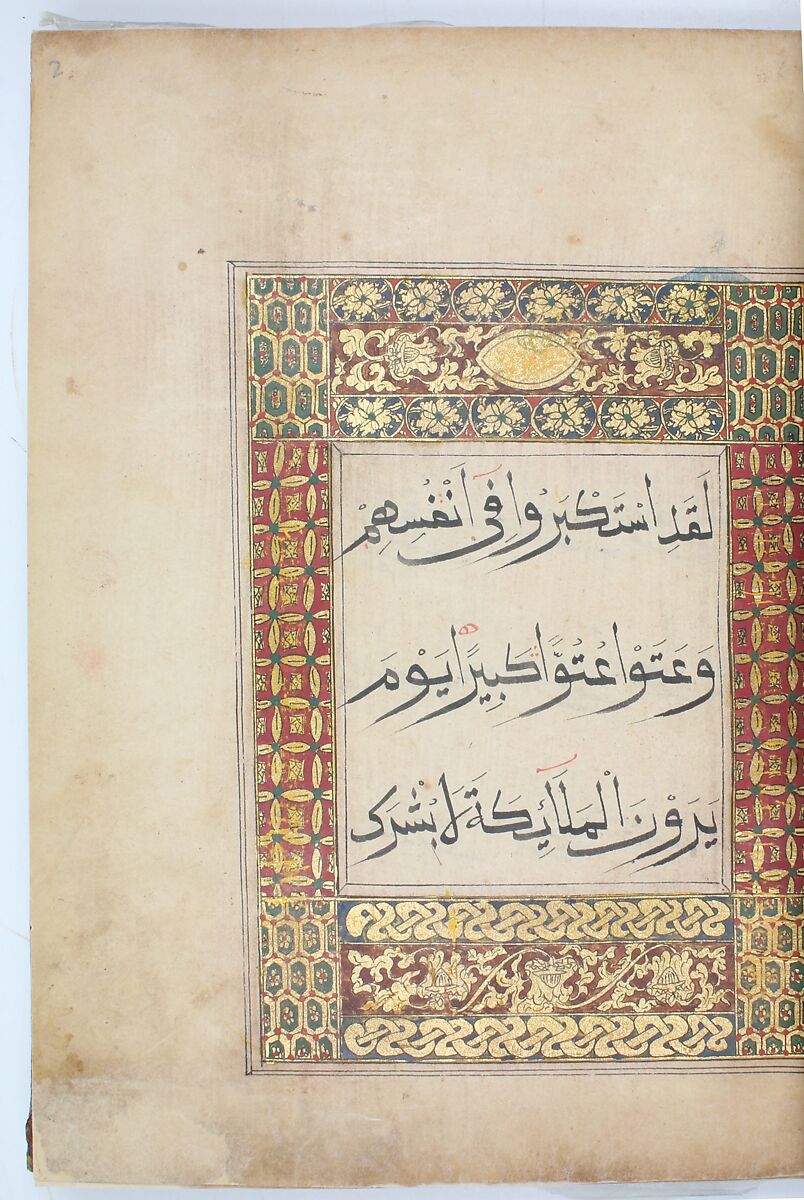 2
لَقَدِ اسْتَكْبَرُوا فِي أَنْفُسِهِمْ
وَعَتَوْا عُتُوًّا كَبِيرًا يَوْمَ
يَرَوْنَ الْمَلَائِكَةَ لَا بُشْرَى